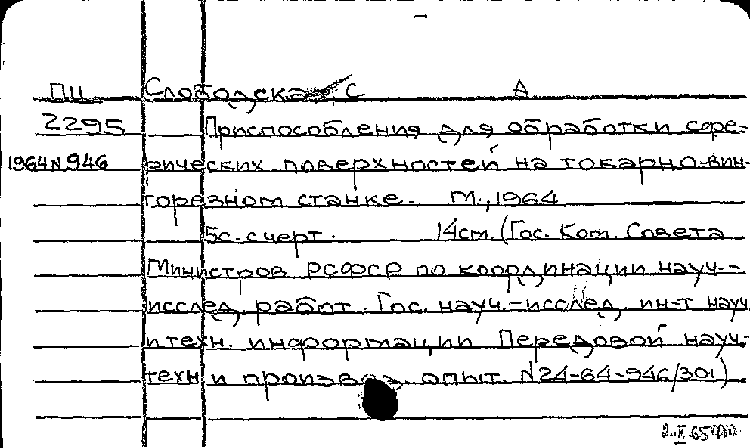 ПЦ Слободская С А
2295 Приспособления для обработки сфе-
1964 N 946 рических поверхностей на токарно-вин-
торезном станке. М., 1964
5с. с черт. 14см. (Гос. Ком. Совета
Министров РСФСР по координации науч.-
исслед. работ. Гос. науч.-исслед. ин-т науч
и техн. информации Передовой науч.-
техн и произвоз. опыт N24-64-946/301)